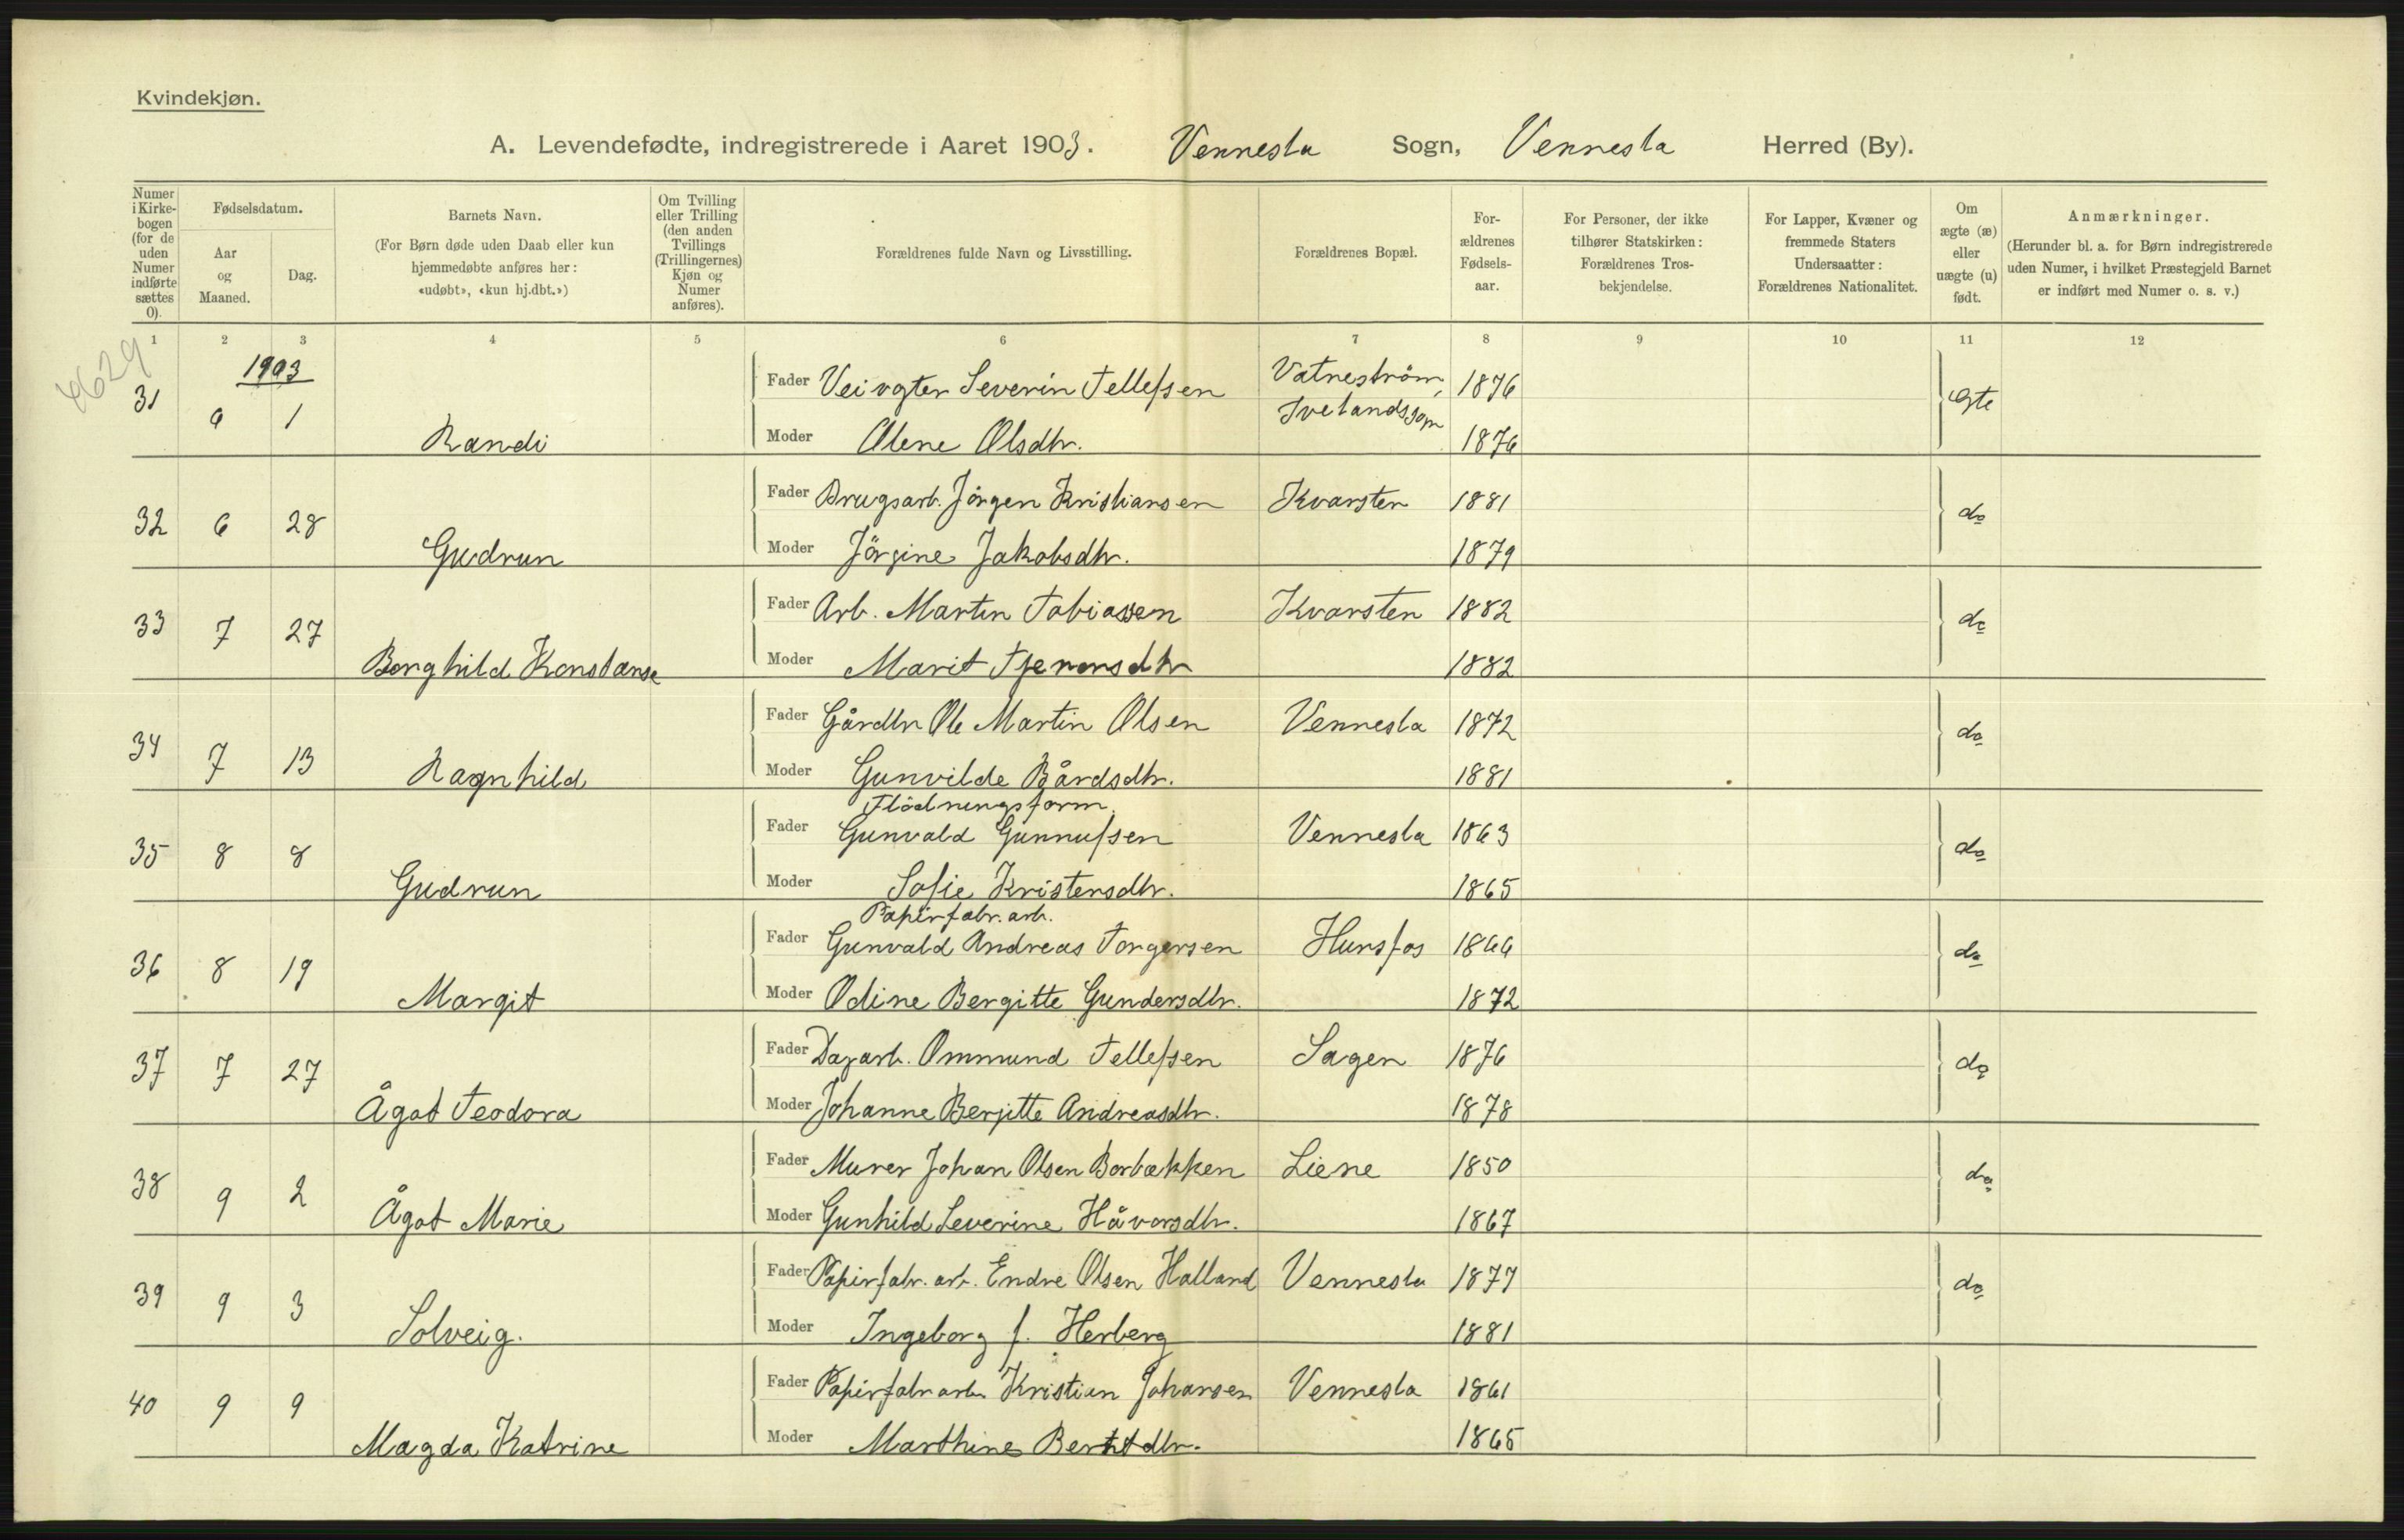 Kvindekjøn.
A. Levendefødte, indregistrerede i Aaret 1903. Vennesla Sogn, Vennesla Herred (By).
Numer i Kirkebogen (for de uden Numer indførte sættes 0).
Fødselsdatum.
Aar og Maaned.
Dag.
Barnets Navn.
(For Børn døde uden Daab eller kun hjemmedøbte anføres her: «udøbt», «kun hj.dbt.»)
Om Tvilling eller Trilling (den anden Tvillings (Trillingernes) Kjøn og Numer anføres).
Forældrenes fulde Navn og Livsstilling.
Forældrenes Bopæl.
Forældrenes Fødselsaar.
For Personer, der ikke tilhører Statskirken: Forældrenes Trosbekjendelse.
For Lapper, Kvæner og fremmede Staters Undersaatter: Forældrenes Nationalitet.
Om ægte (æ) eller uægte (u) født.
Anmærkninger.
(Herunder bl. a. for Børn indregistrerede uden Numer, i hvilket Præstegjeld Barnet er indført med Numer o. s. v.)
1 2 3 4 5 6 7 8 9 10 11 12
4629
1903
31 1 Randi
Fader Veivogter Severin Tellefsen Vatneström, Ivelandssogn 1876 Egte
Moder Olene Olsdtr. 1876
32 6 28 Gudrun
Fader Brugsarb. Jörgen Kristiansen Kvarsten 1881 do
Moder Jörgine Jakobsdtr. 1879
33 7 27 Borghild Konstanse
Fader Arb. Martin Tobiassen Kvarsten 1882 do
Moder Marit 1882
34 7 13 Ragnhild
Fader Gårdbr Ole Martin Olsen Vennesla 1872 do
Moder Gunvilde Bårdsdtr. 1881
35 8 8 Gudrun
Flödningsform.
Fader Gunvald Gunnufsen Vennesla 1863 do
Moder Sofie Kristensdtr. 1865
36 8 19 Margit
Papirfabr. arb.
Fader Gunvald Andreas Torgersen Hunsfos 1866 do
Moder Odine Bergitte Gundersdtr. 1872
37 7 27 Ågot Teodora
Fader Dagarb. Ommund Tellefsen Sagen 1876 do
Moder Johanne Bergitte Andreasdtr. 1878
38 9 2 Ågot Marie
Fader Murer Johan Olsen Borbækken Liene 1850 do
Moder Gunhild Severine Håvorsdtr. 1867
39 9 3 Solveig.
Fader Papirfabr. arb. Endre Olsen Halland Vennesla 1877 do
Moder Ingeborg f. Herberg 1881
40 9 9 Magda Katrine
Fader Papirfabr arb. Kristian Johansen Vennesla 1861
Moder Marthine Berntdtr. 1865